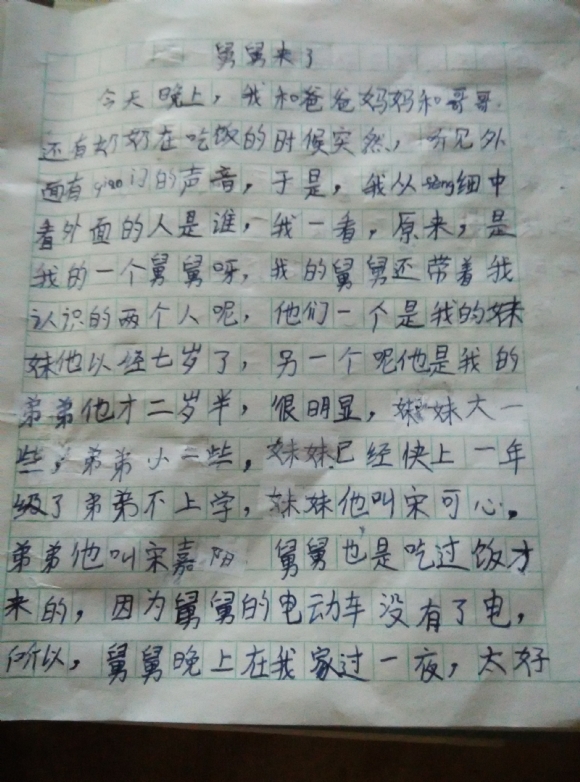 舅舅来了
今天晚上，我和爸爸妈妈和哥哥
还有奶奶在吃饭的时候突然，听见外
面有qiao门的声音，于是，我从 细中
看外面的人是谁，我一看，原来，是
我的一个舅舅呀，我的舅舅还带着我
认识的两个人呢，他们一个是我的妹
妹他以经七岁了，另一个呢他是我的
弟弟他才二岁半，很明显，妹妹大一
些，弟弟小一些，妹妹已经快上一年
级了弟弟不上学，妹妹他叫宋可心。
弟弟他叫宋嘉阳 舅舅也是吃过饭才
来的，因为舅舅的电动车没有了电，
所以，舅舅晚上在我家过一夜，太好